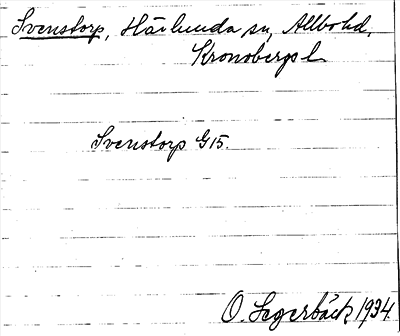 Svenstorp, Härlunda sn, Allbo hd,
Kronobergs l.
Svenstorp G15.
O. Sagerbäck 1934.